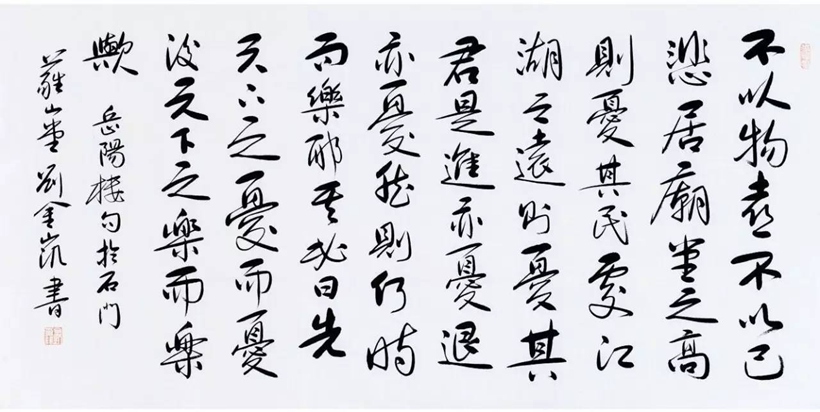 不以物喜不以己
悲居廟堂之高
則憂其民處江
湖之遠則憂其
君是進亦憂退
亦憂然則何時
而樂耶其必曰先
天下之憂而憂
後天下之樂而樂
歟 岳陽樓句於石門
蘿山堂劉金凱書